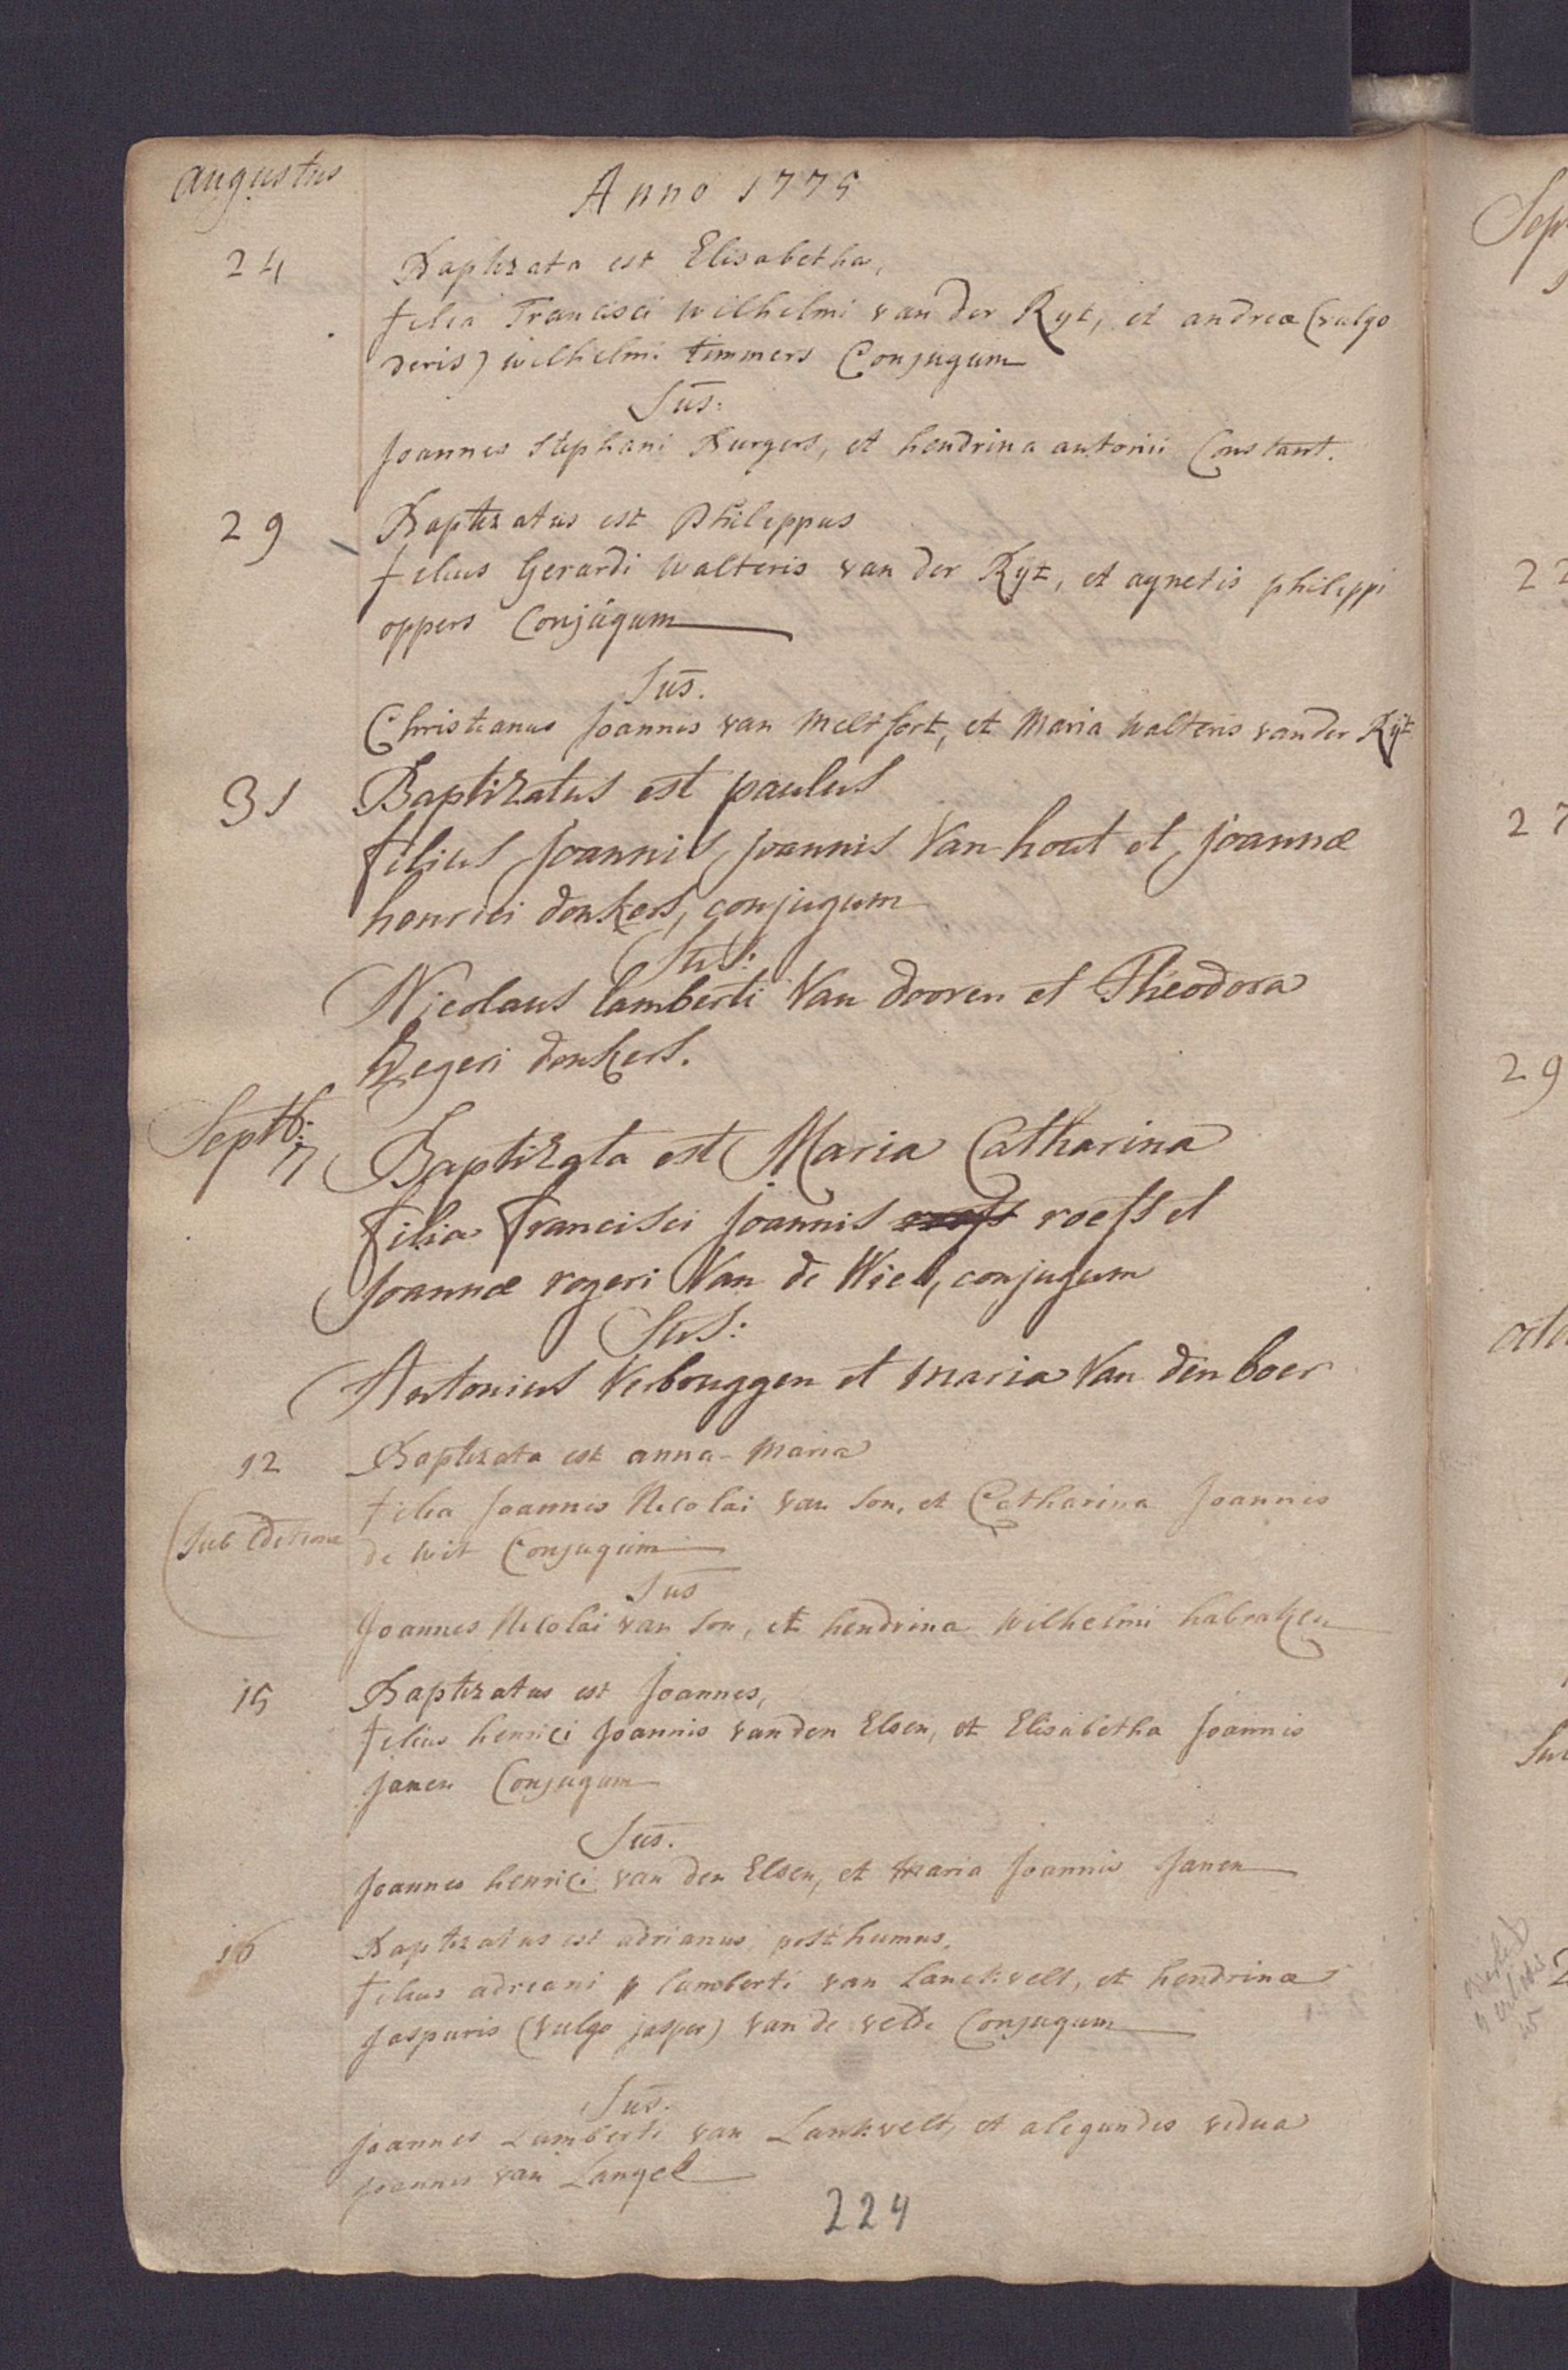 augustus
Anno 1775
24
Baptizata est Elisabetha,
filia Francisci wilhelmi van der Ryt, et andreæ (vulgo
deris) wilhelmi timmers Conjugum
Sus:
Joannes Stephani Burgers, et hendrina antonii Constant.
29
Baptizatus est Philippus
filius Gerardi Walteris van der Rijt, et agnetis philippi
oppers Conjugum
Sus.
Christianus Joannes van Meltfort, et Maria Walteris vander Rijt
31
Baptizatus est paulus
filius Joannis, Joannis Van hout et Joannæ
henrici donkers, conjugum
Sus:
Nicolaus lamberti Van dooren et Theodora
Zegeri donkers.
Septb:
7
Baptizata est Maria Catharina
filia francisci Joannis roefs et
Joannæ rogeri Van de Wiel, conjugum
Sus:
Antonius Verbruggen et maria Van den boer
12
Baptizata est anna-Maria
filia Joannis Nicolai van Son, et Catharina Joannis
(sub
de Wit Conjugum
Sus
Joannes Nicolai van Son, et hendrina Wilhelmi habraken
15
Baptizatus est Joannes,
filius henrici Joannis vanden Elsen, et Elisabetha Joannis
Janen Conjugum
Sus.
Joannes henrici van den Elsen, et Maria Joannis Janen
16
Baptizatus est adrianus posthumus,
filius adriani lamberti van Lanckvelt, et hendrinæ
Jasparis (vulgo jasper) van de velde Conjugum
Sus.
Joannes Lamberti van Lankvelt, et alegundis vidua
Joannis van Langel
224
Sep
22
27
29